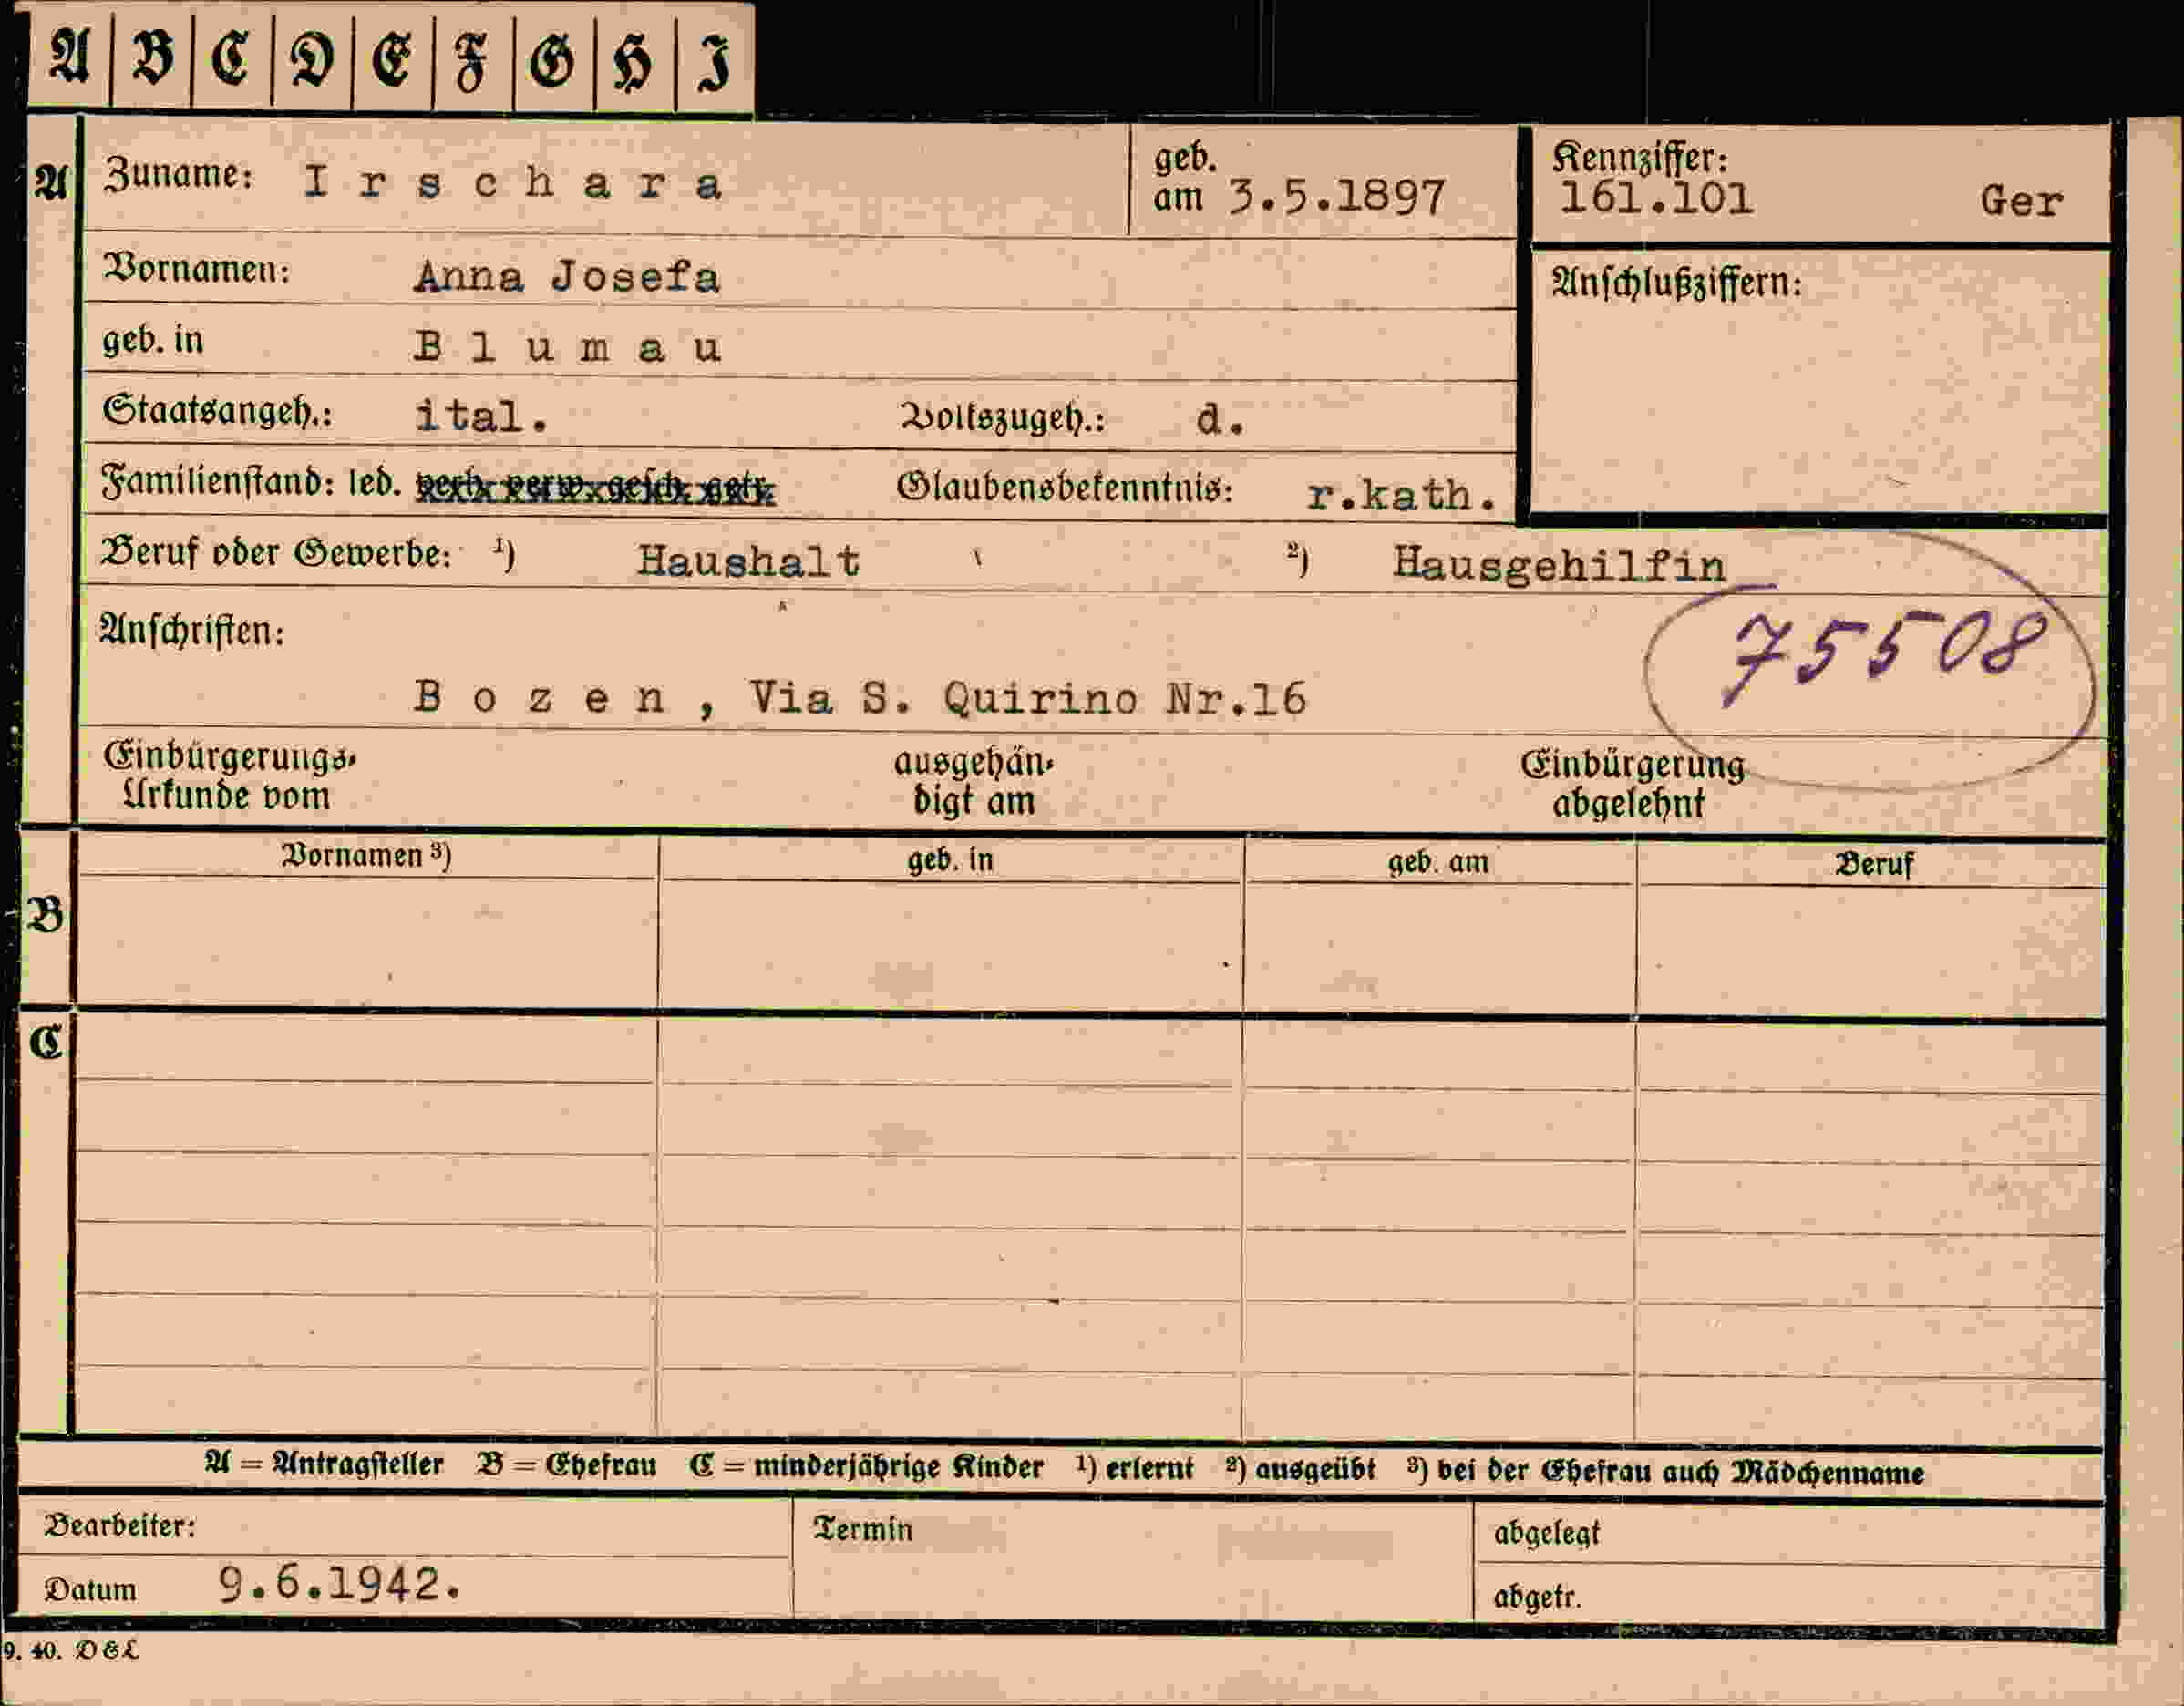 A B C D E F G H I
A Zuname: Irschara geb. am 3.5.1897 Kennziffer: 161.101 Ger
Vornamen: Anna Josefa Anschlußziffern:
geb. in Blumau
Staatsangeh.: ital. Volkszugeh.: d.
Familienstand: led. verh. verw. gesch. getr. Glaubensbekenntnis: r.kath.
Beruf oder Gewerbe: ¹) Haushalt ²) Hausgehilfin
Anschriften:
75508
Bozen, Via S. Quirino Nr.16
Einbürgerungs- ausgehän- Einbürgerung
Urkunde vom digt am abgelehnt
Vornamen ³) geb. in geb. am Beruf
B
C
A = Antragsteller B = Ehefrau C = minderjährige Kinder ¹) erlernt ²) ausgeübt ³) bei der Ehefrau auch Mädchenname
Bearbeiter: Termin abgelegt
Datum 9.6.1942. abgetr.
9. 40. D&L